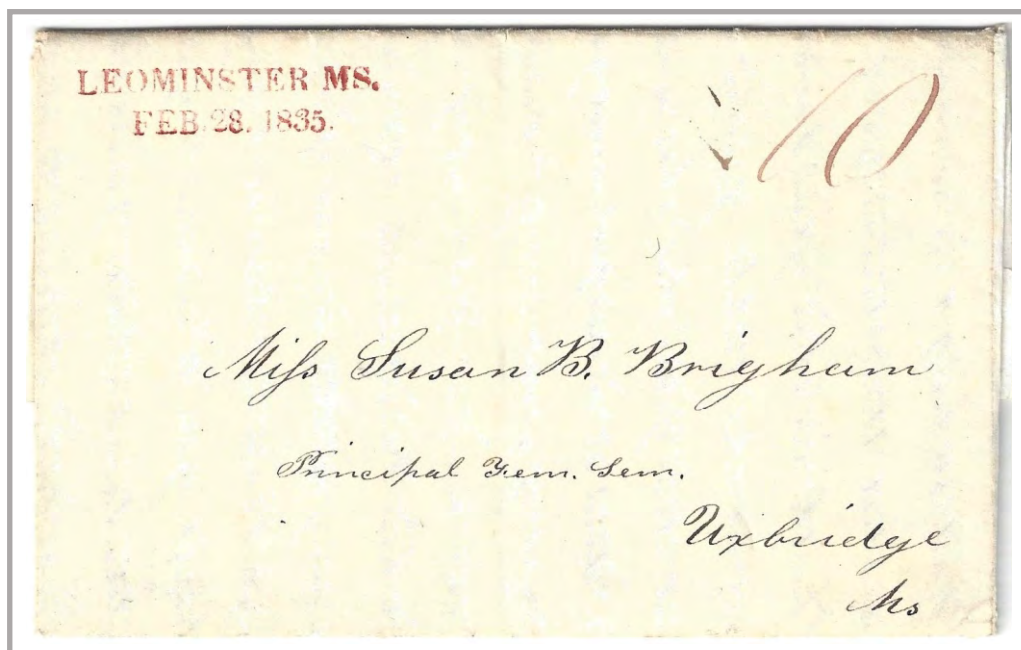 LEOMINSTER MS.
FEB. 28. 1835.
10
Miſs Susan B. Brigham
Principal Fem. Sem.
Uxbridge
Ms